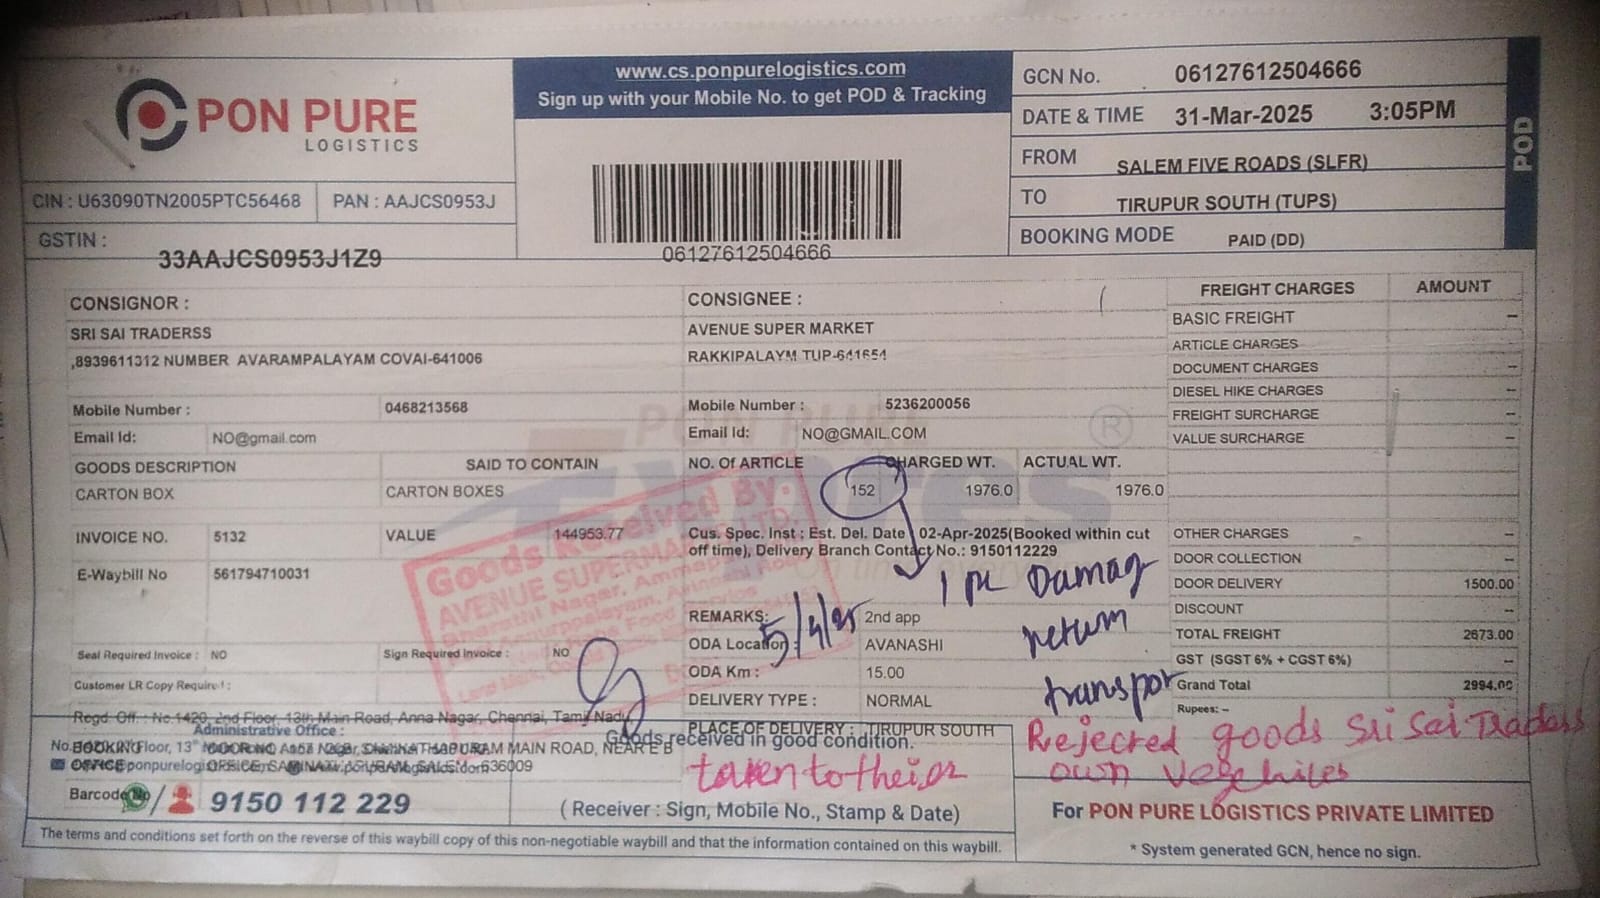 PON PURE
LOGISTICS
CIN : U63090TN2005PTC56468
PAN : AAJCS0953J
GSTIN :
33AAJCS0953J1Z9
www.cs.ponpurelogistics.com
Sign up with your Mobile No. to get POD & Tracking
06127612504666
GCN No. 06127612504666
DATE & TIME 31-Mar-2025 3:05PM
FROM SALEM FIVE ROADS (SLFR)
TO TIRUPUR SOUTH (TUPS)
BOOKING MODE PAID (DD)
POD
CONSIGNOR :
SRI SAI TRADERSS
,8939611312 NUMBER AVARAMPALAYAM COVAI-641006
Mobile Number : 0468213568
Email Id: NO@gmail.com
GOODS DESCRIPTION SAID TO CONTAIN
CARTON BOX CARTON BOXES
INVOICE NO. 5132 VALUE 144953.77
E-Waybill No 561794710031
Seal Required Invoice : NO Sign Required Invoice : NO
Customer LR Copy Required :
CONSIGNEE :
AVENUE SUPER MARKET
RAKKIPALAYM TUP-641654
Mobile Number : 5236200056
Email Id: NO@GMAIL.COM
NO. Of ARTICLE CHARGED WT. ACTUAL WT.
152 1976.0 1976.0
Cus. Spec. Inst : Est. Del. Date 02-Apr-2025(Booked within cut
off time), Delivery Branch Contact No.: 9150112229
REMARKS: 2nd app
ODA Location : AVANASHI
ODA Km : 15.00
DELIVERY TYPE : NORMAL
PLACE OF DELIVERY : TIRUPUR SOUTH
FREIGHT CHARGES AMOUNT
BASIC FREIGHT –
ARTICLE CHARGES –
DOCUMENT CHARGES –
DIESEL HIKE CHARGES –
FREIGHT SURCHARGE –
VALUE SURCHARGE –
OTHER CHARGES –
DOOR COLLECTION –
DOOR DELIVERY 1500.00
DISCOUNT –
TOTAL FREIGHT 2673.00
GST (SGST 6% + CGST 6%) –
Grand Total 2994.00
Rupees: –
Goods Received By:
AVENUE SUPERMA
5/4/25
Damag
return
transpor
Rejected goods Sri Sai Tradess
own vegehiles
taken to theior
Regd. Off. : No.1420, 2nd Floor, 13th Main Road, Anna Nagar, Chennai, Tamil Nadu
Administrative Office :
MAIN ROAD, NEAR E B
636009
Goods received in good condition.
9150 112 229
( Receiver : Sign, Mobile No., Stamp & Date)
For PON PURE LOGISTICS PRIVATE LIMITED
* System generated GCN, hence no sign.
The terms and conditions set forth on the reverse of this waybill copy of this non-negotiable waybill and that the information contained on this waybill.